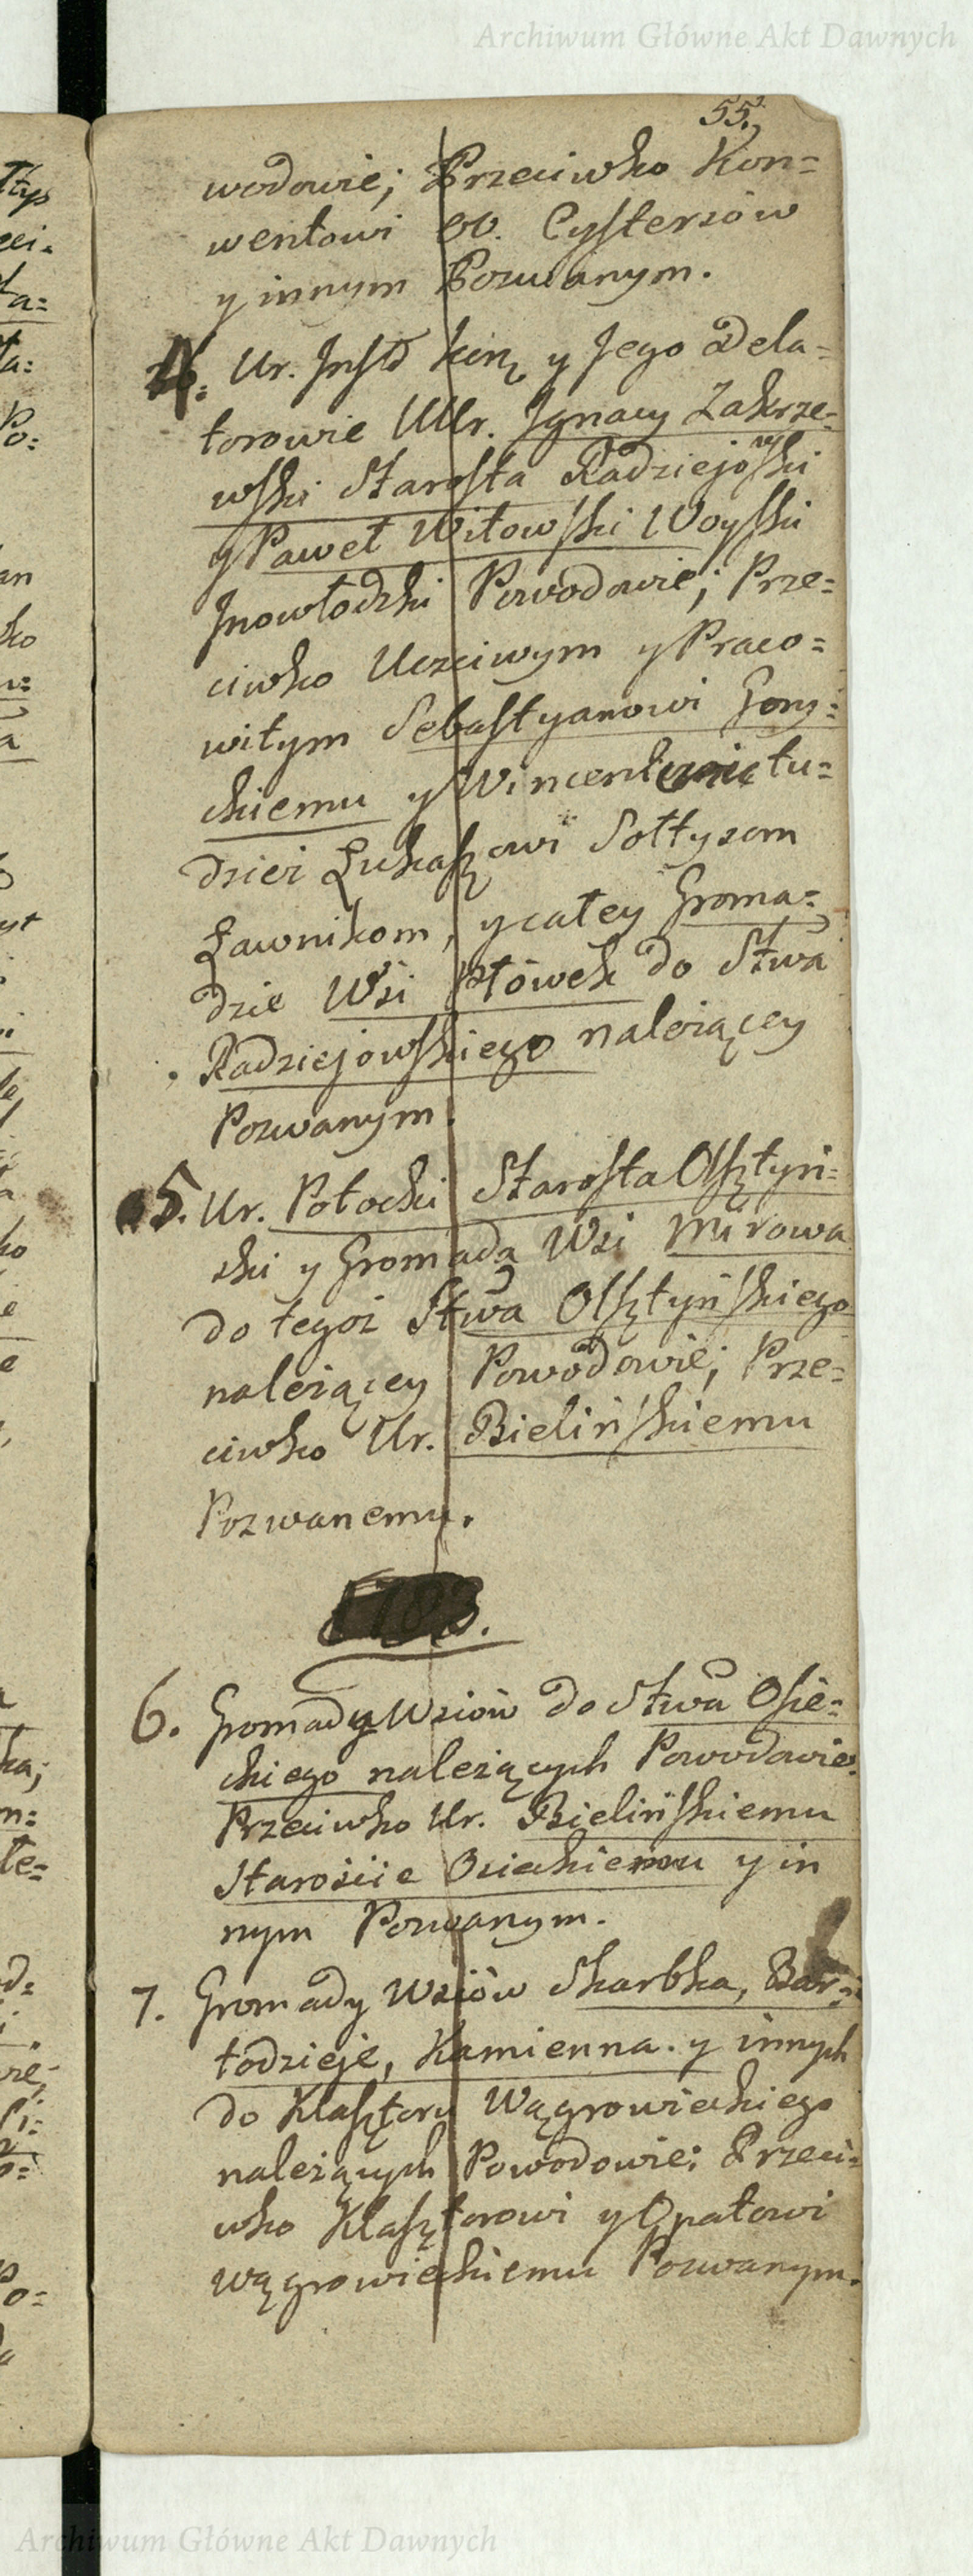 Archiwum Główne Akt Dawnych
55.
wodowie; Przeciwko Kon=
wentowi OO. Cystersów
y innym Pozwanym.
4. Ur. Inst. y Jego Dela=
torowie Ur. Ignacy Zakrze=
wski Starosta Radziejowski
y Paweł Witowski Woyski
Inowłodzki Powodowie; Prze=
ciwko Uczciwym y Praco=
witym Sebastyanowi Gorz=
skiemu y Wincentemu tu=
dzież Łukaszowi Sołtysom
Ławnikom, y całey Groma=
dzie Wsi Płówek do Stwa
Radziejowskiego należącey
Pozwanym.
5. Ur. Potocki Starosta Olsztyń=
ski y Gromada Wsi Mirowa
do tegoż Stwa Olsztyńskiego
należącey Powodowie; Prze=
ciwko Ur. Bielińskiemu
Pozwanemu.
6. Gromady Wsiów do Stwa Osie=
ckiego należących Powodowie
Przeciwko Ur. Bielińskiemu
Starościie Osieckiemu y in
nym Pozwanym.
7. Gromady Wsiów Skarbka, Bar=
todzieje, Kamienna. y innych
do Klasztoru Wągrowieckiego
należących Powodowie; Przeci=
wko Klasztorowi y Opatowi
Wągrowieckiemu Pozwanym.
Archiwum Główne Akt Dawnych